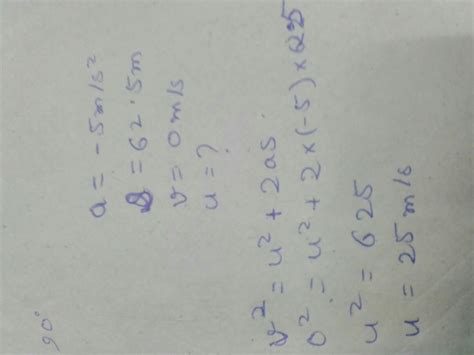 90°
a = -5m/s²
s = 62.5m
v = 0m/s
u = ?
v² = u² + 2as
0² = u² + 2×(-5)×625
u² = 625
u = 25m/s